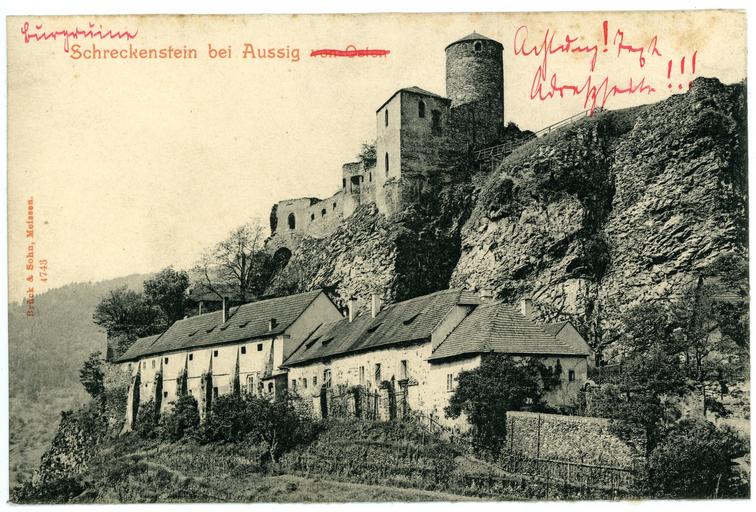 Burgruine
Schreckenstein bei Aussig von Osten
Achtung! Text
Adreßseite!!!
Brück & Sohn, Meissen.
4743